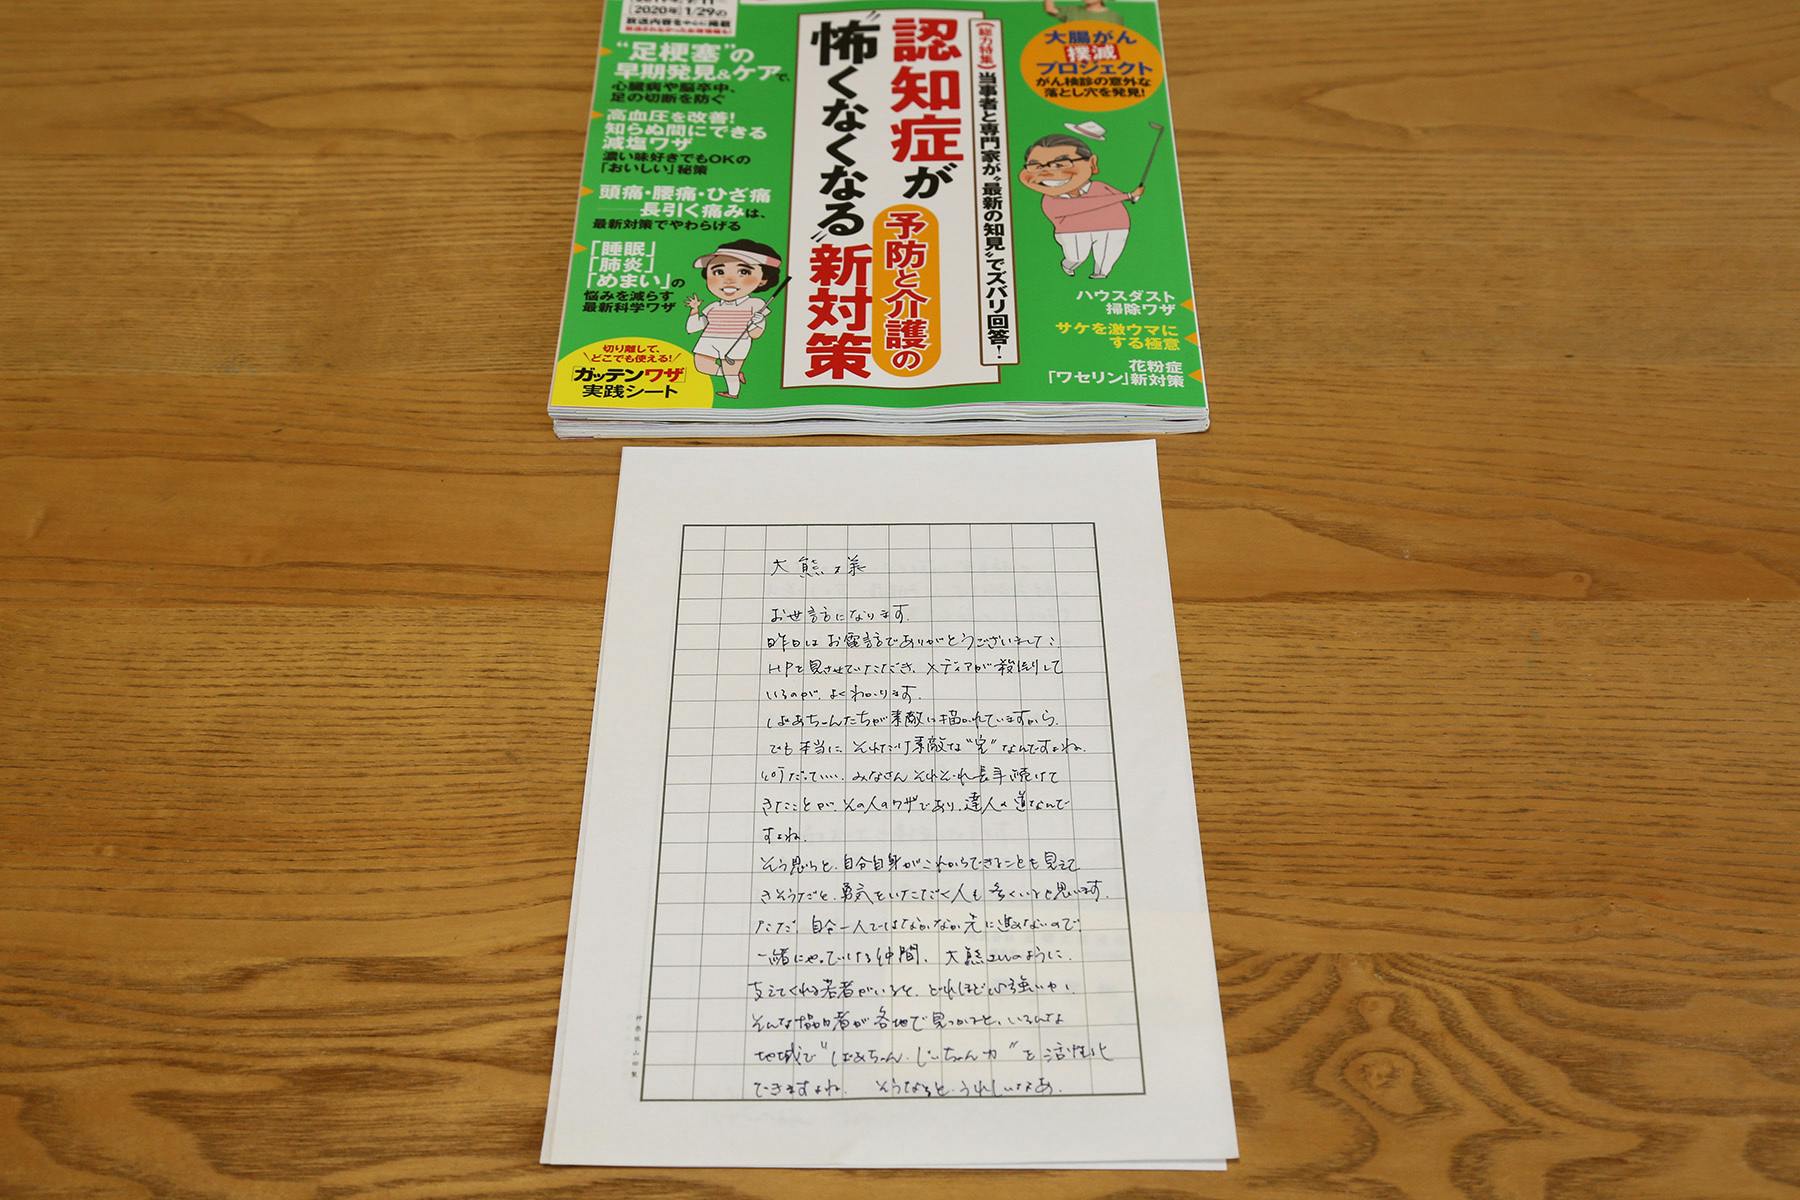 [2020年]1/29の
放送内容を中心に掲載
"足梗塞"の
早期発見&ケアで、
心臓病や脳卒中、
足の切断を防ぐ
高血圧を改善!
知らぬ間にできる
減塩ワザ
濃い味好きでもOKの
「おいしい」秘策
頭痛・腰痛・ひざ痛
長引く痛みは、
最新対策でやわらげる
「睡眠」
「肺炎」
「めまい」の
悩みを減らす
最新科学ワザ
切り離して、
どこでも使える!
「ガッテンワザ」
実践シート
《総力特集》当事者と専門家が"最新の知見"でズバリ回答!
認知症が
"怖くなくなる"新対策
予防と介護の
大腸がん
撲滅
プロジェクト
がん検診の意外な
落とし穴を発見!
ハウスダスト
掃除ワザ
サケを激ウマに
する極意
花粉症
「ワセリン」新対策
大熊様
お世話になります。
昨日はお電話でありがとうございました。
HPを見させていただき、メディアが殺到して
いるのが、よくわかります。
ばあちゃんたちが素敵に描かれていますから。
でも本当に、それだけ素敵な"宝"なんですよね。
何だっていい、みなさんそれぞれ長年続けて
きたことが、その人のワザであり、達人の道なんで
すよね。
そう思うと、自分自身がこれからできることも見えて
きそうだと、勇気をいただく人も多くいると思います。
ただ、自分一人ではなかなか先に進めないので、
一緒にやっていける仲間、大熊さんのように、
支えてくれる若者がいると、どれほど心強いか、
そんな協力者が各地で見つかると、いろんな
地域で"ばあちゃん、じいちゃん力"を活性化
できますよね。そうなると、うれしいなあ。
神楽坂 山田製